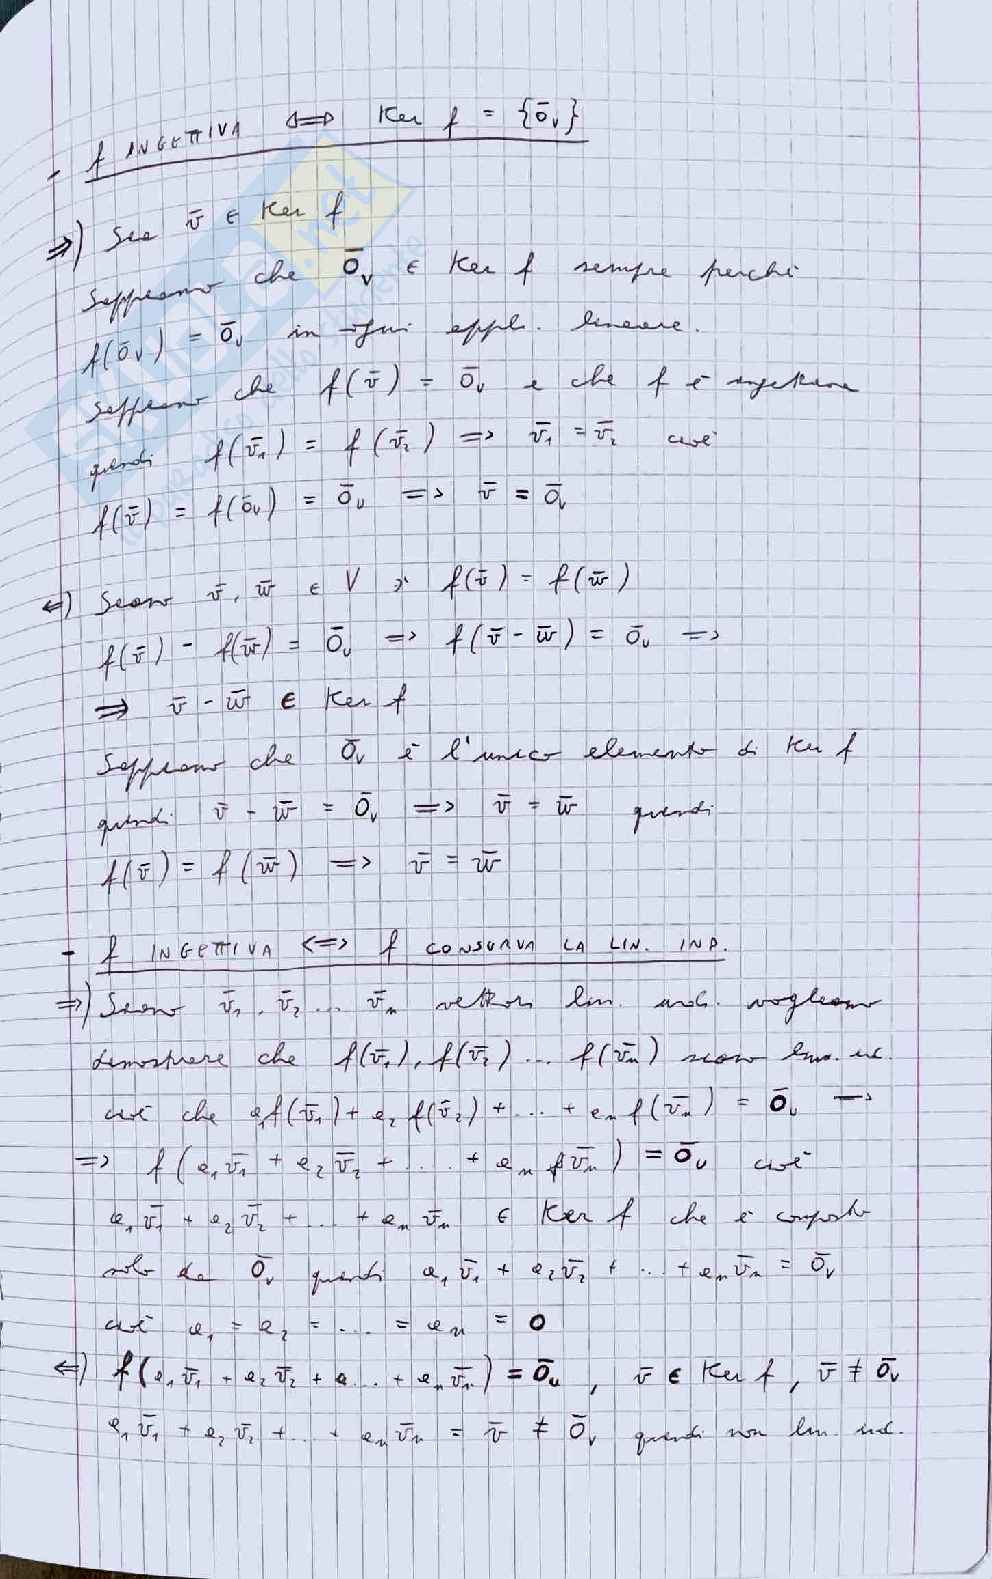 - f INGETTIVA ⟺ Ker f = {0̄ᵥ}
⇒) Sia v̄ ∈ Ker f
Sappiamo che 0̄ᵥ ∈ Ker f sempre perché
f(0̄ᵥ) = 0̄ᵤ in ogni appl. lineare.
Sappiamo che f(v̄) = 0̄ᵤ e che f è ingettiva
quindi f(v̄₁) = f(v̄₂) ⇒ v̄₁ = v̄₂ cioè
f(v̄) = f(0̄ᵥ) = 0̄ᵤ ⇒ v̄ = 0̄ᵥ
⇐) Siano v̄, w̄ ∈ V : f(v̄) = f(w̄)
f(v̄) - f(w̄) = 0̄ᵤ ⇒ f(v̄ - w̄) = 0̄ᵤ ⇒
⇒ v̄ - w̄ ∈ Ker f
Sappiamo che 0̄ᵥ è l'unico elemento di Ker f
quindi v̄ - w̄ = 0̄ᵥ ⇒ v̄ = w̄ quindi
f(v̄) = f(w̄) ⇒ v̄ = w̄
- f INGETTIVA ⟺ f CONSERVA LA LIN. IND.
⇒) Siano v̄₁, v̄₂ ... v̄ₙ vettori lin. ind. vogliamo
dimostrare che f(v̄₁), f(v̄₂) ... f(v̄ₙ) siano lin. ind.
cioè che a₁f(v̄₁) + a₂f(v̄₂) + ... + aₙf(v̄ₙ) = 0̄ᵤ ⇒
⇒ f(a₁v̄₁ + a₂v̄₂ + ... + aₙv̄ₙ) = 0̄ᵤ cioè
a₁v̄₁ + a₂v̄₂ + ... + aₙv̄ₙ ∈ Ker f che è composto
solo da 0̄ᵥ quindi a₁v̄₁ + a₂v̄₂ + ... + aₙv̄ₙ = 0̄ᵥ
cioè a₁ = a₂ = ... = aₙ = 0
⇐) f(a₁v̄₁ + a₂v̄₂ + a... + aₙv̄ₙ) = 0̄ᵤ, v̄ ∈ Ker f, v̄ ≠ 0̄ᵥ
a₁v̄₁ + a₂v̄₂ + ... + aₙv̄ₙ = v̄ ≠ 0̄ᵥ quindi non lin. ind.